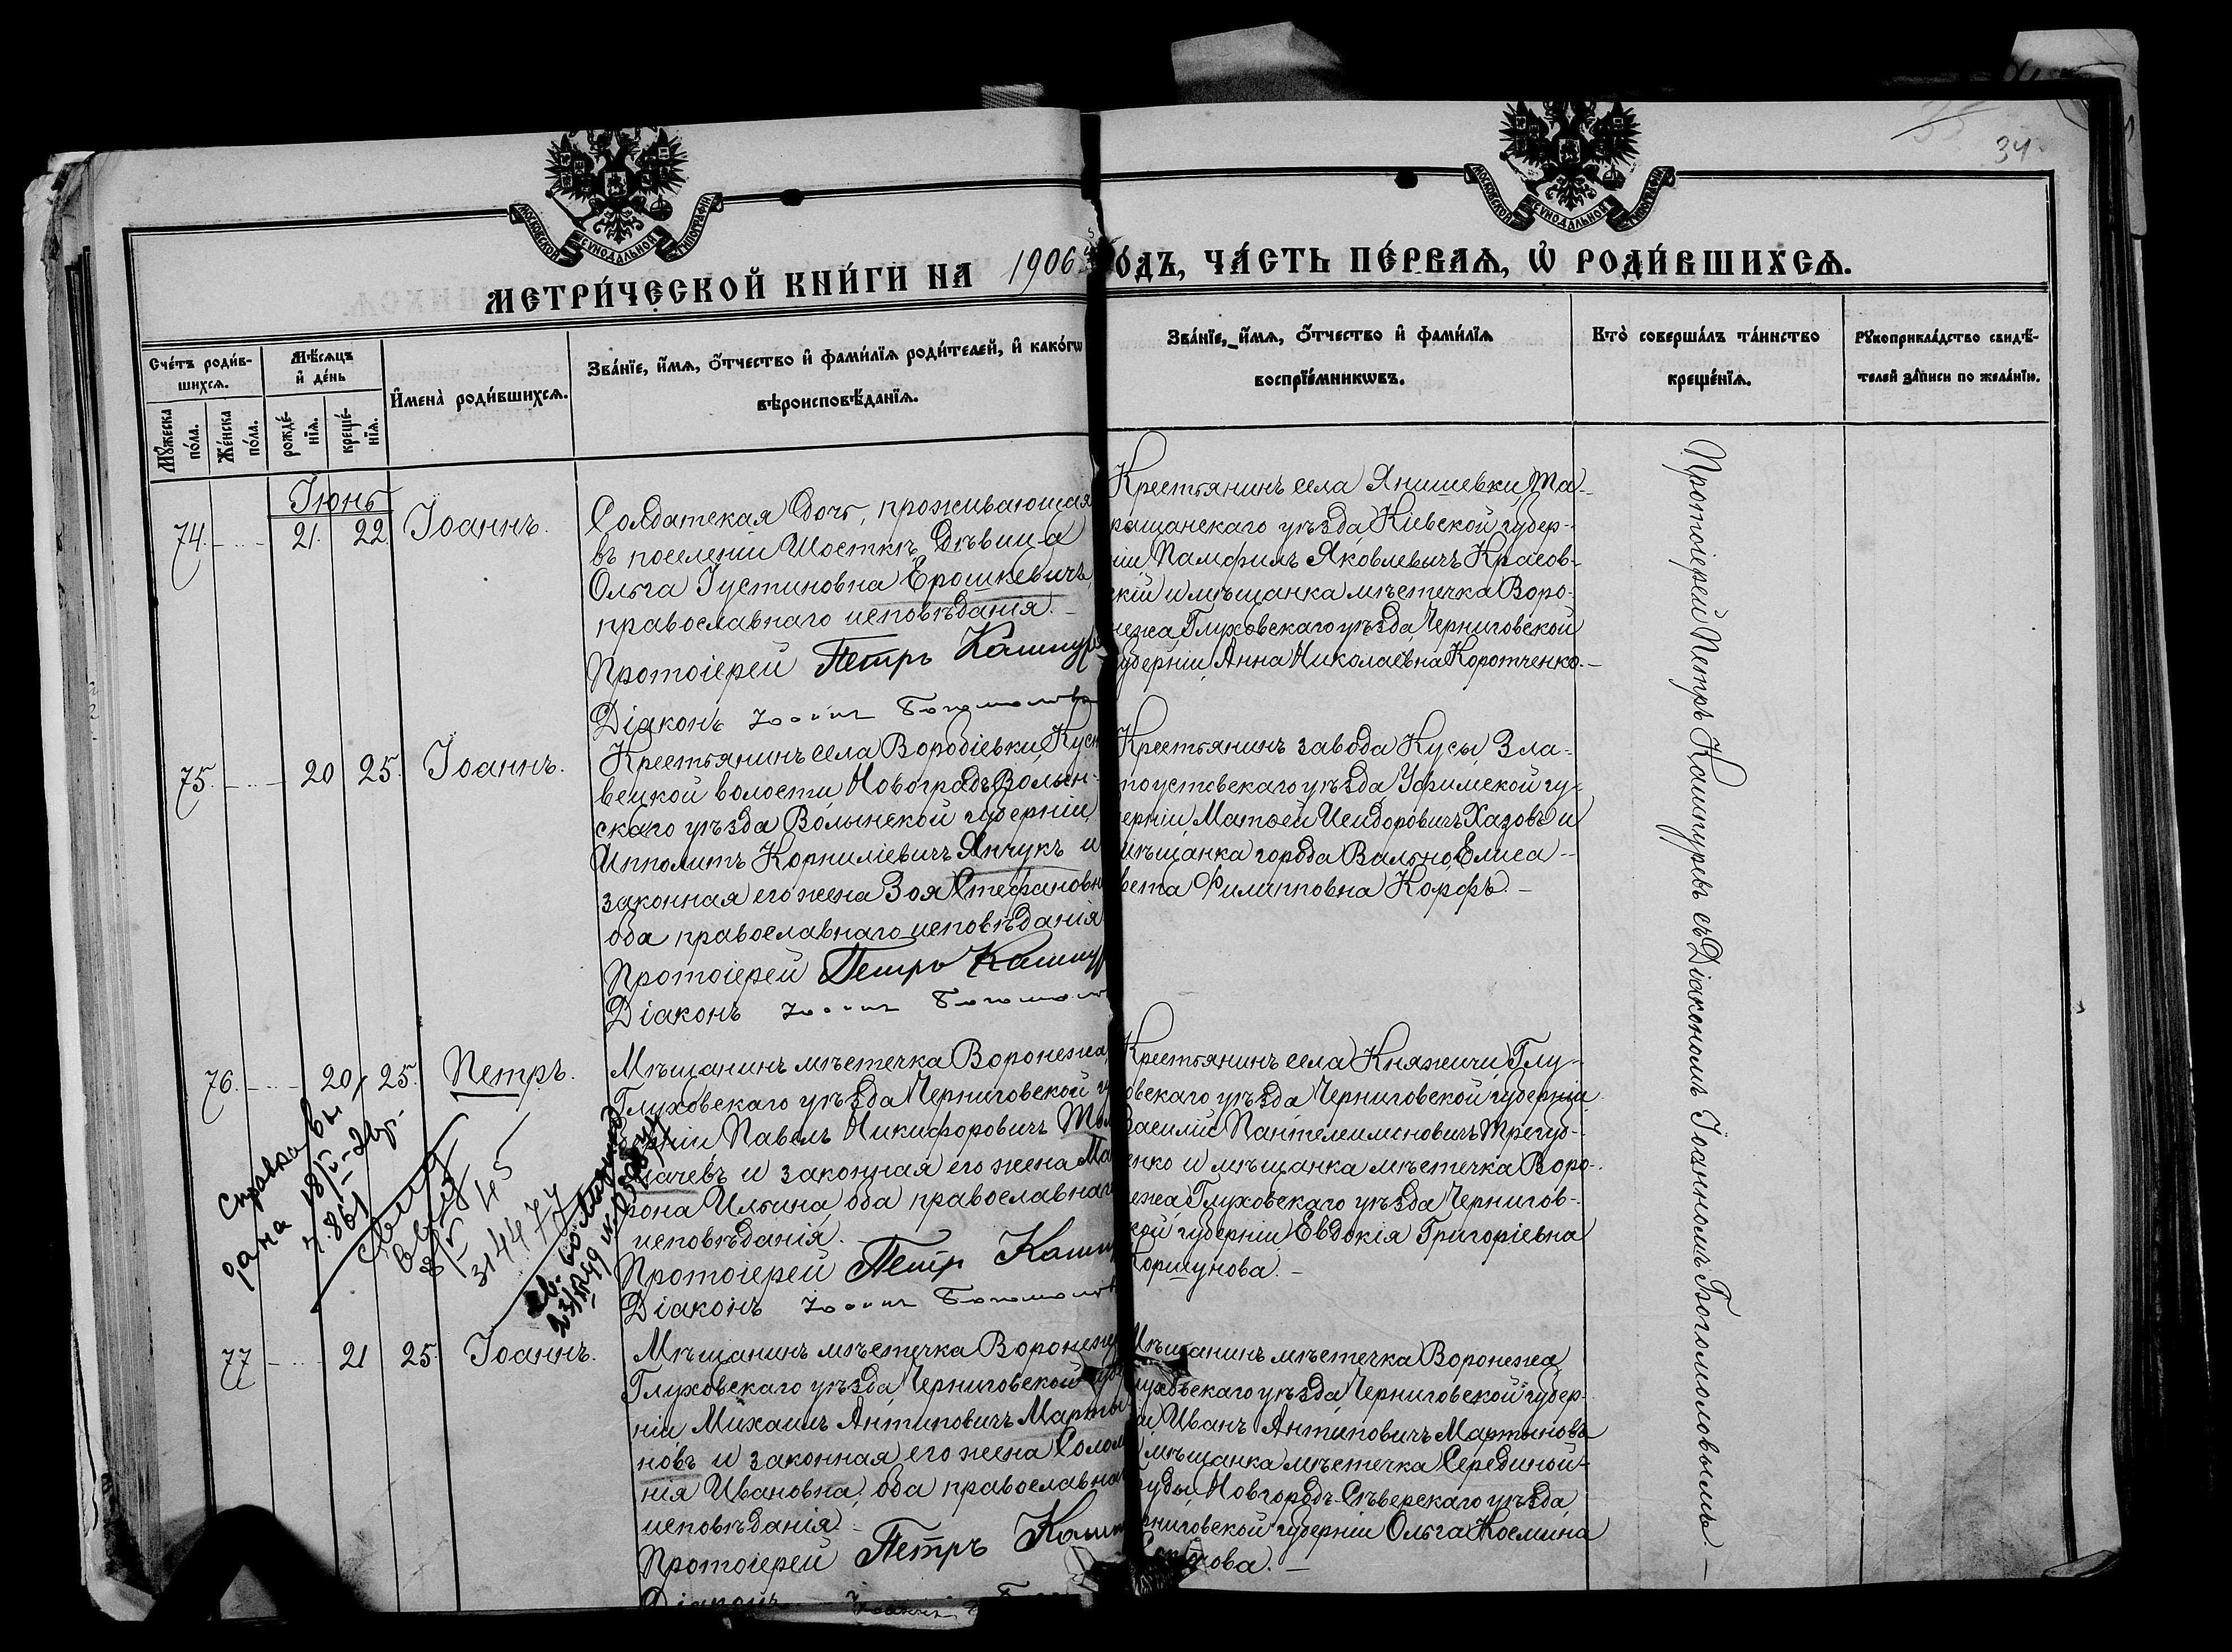 34
МОСКОВСКОЙ СѴНОДАЛЬНОЙ ТИПОГРАФІИ
МОСКОВСКОЙ СѴНОДАЛЬНОЙ ТИПОГРАФІИ
МЕТРИ́ЧЕСКОЙ КНИ́ГИ НА 1906 ГОДЪ, ЧА́СТЬ ПЕ́РВАѦ, Ѡ҆ РОДИ́ВШИХСѦ.
Сче́тъ роди́в-
шихсѧ.
Мꙋ́жеска по́ла.
Же́нска по́ла.
Мѣ́сѧцъ
и҆ де́нь
рожде́-
нїѧ.
креще́-
нїѧ.
И҆мена̀ роди́вшихсѧ.
Зва́нїе, и҆́мѧ, ѻ҆́тчество и҆ фами́лїѧ роди́телей, и҆ како́гѡ
вѣроисповѣ́данїѧ.
Зва́нїе, и҆́мѧ, ѻ҆́тчество и҆ фами́лїѧ
воспрїе́мникѡвъ.
Кто̀ соверша́лъ та́инство
креще́нїѧ.
Рꙋкоприкла́дство свидѣ́-
телей за́писи по жела́нїю.
Іюнь
74. 21. 22. Іоаннъ.
Солдатская дочь, проживающая
въ поселеніи Шосткѣ, дѣвица
Ольга Іустиновна Ерошкевичъ,
православнаго исповѣданія.
Протоіерей Петръ Кашпур
Діаконъ Іоаннъ Богомоловъ
Крестьянинъ села Янишевки, Та-
ращанскаго уѣзда Кіевской губер-
ніи Памфилъ Яковлевичъ Красов-
скій и мѣщанка мѣстечка Воро-
нежа Глуховскаго уѣзда Черниговской
губерніи Анна Николаевна Коротченко.
75. 20 25. Іоаннъ.
Крестьянинъ села Воробіевки, Кус
вецкой волости Новоградъ-Волын-
скаго уѣзда Волынской губерніи
Ипполитъ Корниліевичъ Янчукъ и
законная его жена Зоя Стефановн
оба православнаго исповѣданія
Протоіерей Петръ Кашпур
Діаконъ Іоаннъ Богомолов
Крестьянинъ завода Кусы, Зла-
тоустовскаго уѣзда Уфимской гу-
берніи Матѳей Исидоровичъ Хазовъ и
мѣщанка города Вильно Елиса-
вета Филипповна Корфъ.
76. 20 25. Петръ.
Мѣщанинъ мѣстечка Воронежа,
Глуховскаго уѣзда Черниговской гу
берніи Павелъ Никифоровичъ Тол
мачевъ и законная его жена Ма
рона Ильина, оба православнаг
исповѣданія.
Протоіерей Петръ Кашпу
Діаконъ Іоаннъ Богомолов
Крестьянинъ села Княжичи, Глу-
ховскаго уѣзда Черниговской губерніи
Василій Пантелеимоновичъ Трегуб-
енко и мѣщанка мѣстечка Воро-
нежа, Глуховскаго уѣзда Чернигов-
ской губерніи Евдокія Григоріевна
Коршунова.
Справка вы
дана 18/V-
8/V 45
314477
77 21 25. Іоаннъ.
Мѣщанинъ мѣстечка Воронежа
Глуховскаго уѣзда Черниговской губ
ніи Михаилъ Антиповичъ Марты-
новъ и законная его жена Солом
нія Ивановна, оба православна
исповѣданія.
Протоіерей Петръ Кашп
Діаконъ Іоаннъ
Мѣщанинъ мѣстечка Воронежа
Глуховскаго уѣзда Черниговской губер-
ніи Иванъ Антиповичъ Мартыновъ
и мѣщанка мѣстечка Серединой-
Буды, Новгородъ-Сѣверскаго уѣзда
Черниговской губерніи Ольга Космина
Протоіерей Петръ Кашпуревъ съ Діакономъ Іоанномъ Богомоловымъ.